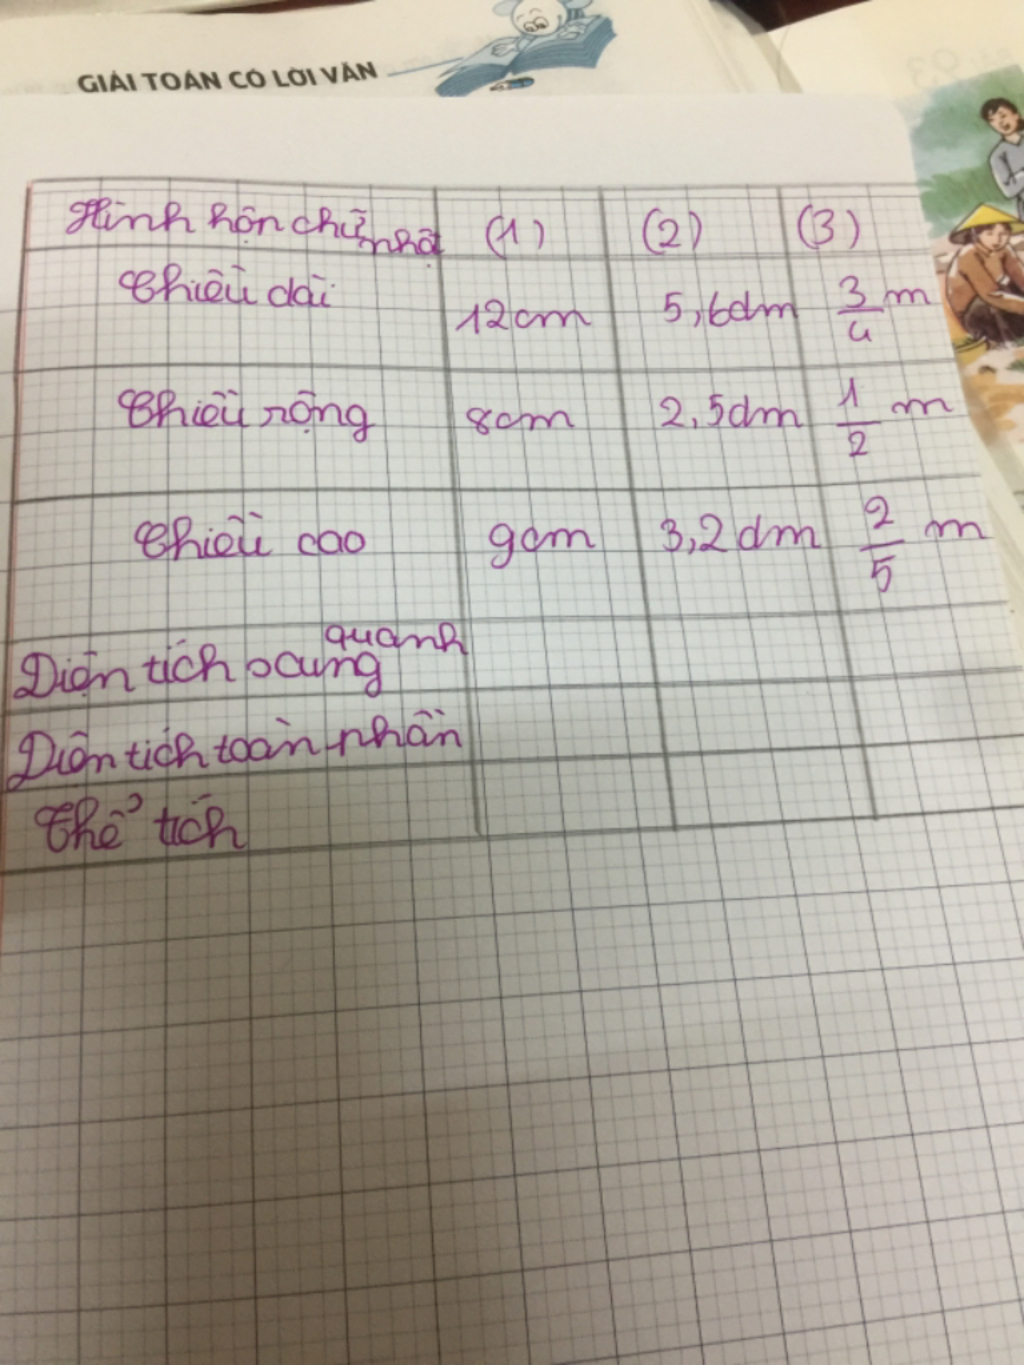 GIẢI TOÁN CÓ LỜI VĂN
Hình hộp chữ nhật (1) (2) (3)
Chiều dài 12cm 5,6dm 3/4 m
Chiều rộng 8cm 2,5dm 1/2 m
Chiều cao 9cm 3,2dm 2/5 m
Diện tích xung quanh
Diện tích toàn phần
Thể tích